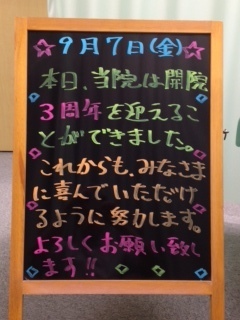 ☆9月7日(金)☆
本日、当院は開院
3周年を迎えるこ
とができました。
これからも、みなさま
に喜んでいただけ
るように努力します。
よろしくお願い致し
ます!!